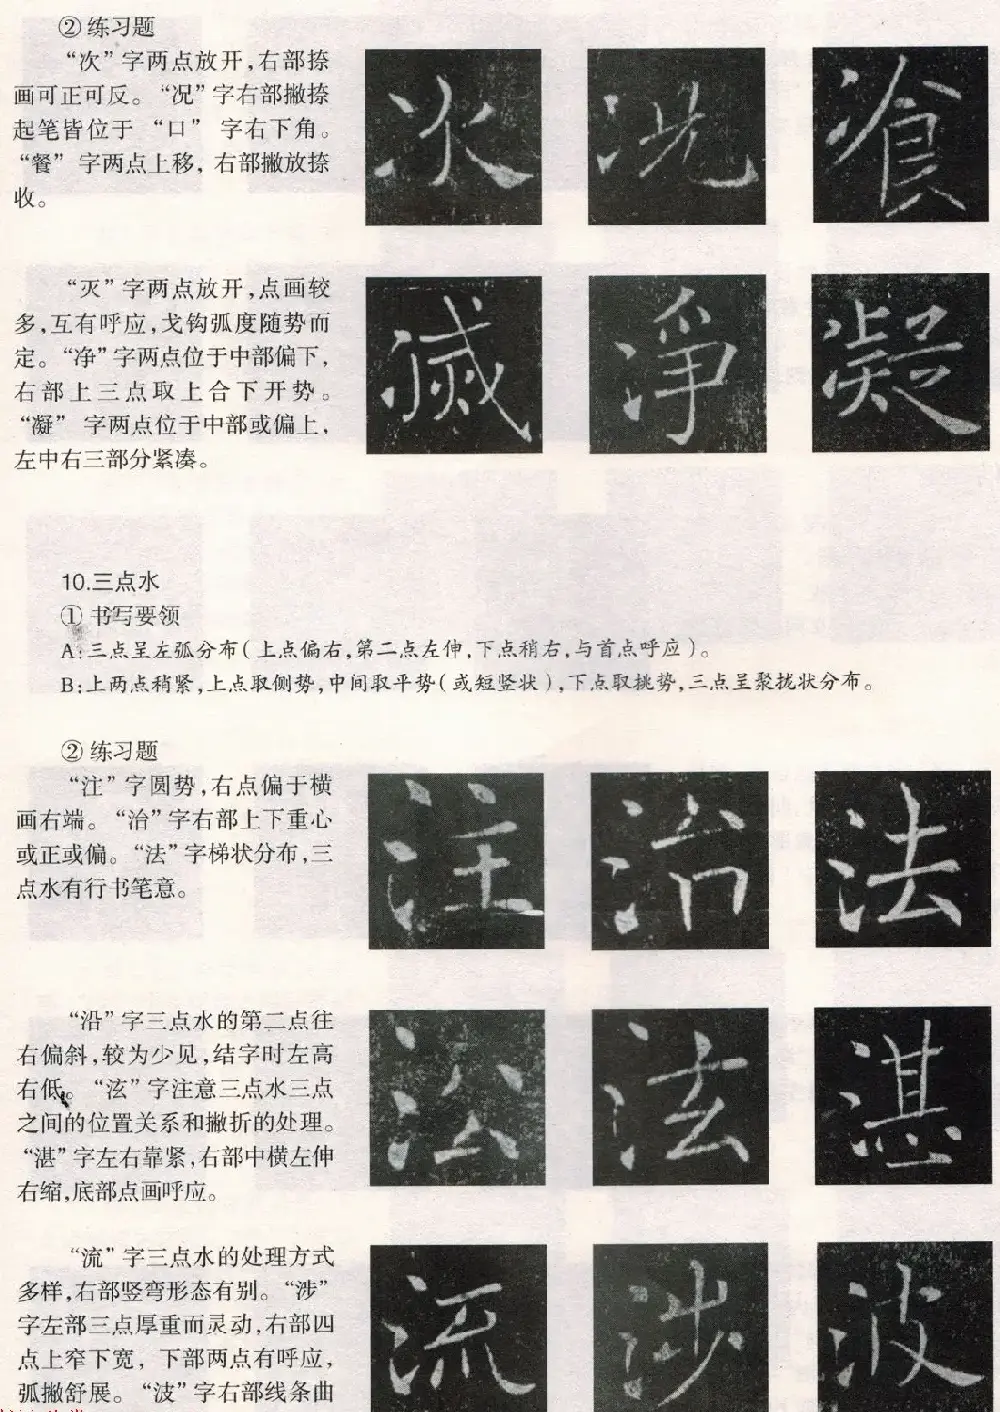 ② 练习题
“次”字两点放开,右部捺
画可正可反。“况”字右部撇捺
起笔皆位于“口”字右下角。
“餐”字两点上移,右部撇放捺
收。
“灭”字两点放开,点画较
多,互有呼应,戈钩弧度随势而
定。“净”字两点位于中部偏下,
右部上三点取上合下开势。
“凝”字两点位于中部或偏上,
左中右三部分紧凑。
10.三点水
① 书写要领
A:三点呈左弧分布(上点偏右,第二点左伸,下点稍右,与首点呼应)。
B:上两点稍紧,上点取侧势,中间取平势(或短竖状),下点取挑势,三点呈聚拢状分布。
② 练习题
“注”字圆势,右点偏于横
画右端。“治”字右部上下重心
或正或偏。“法”字梯状分布,三
点水有行书笔意。
注 治 法
“沿”字三点水的第二点往
右偏斜,较为少见,结字时左高
右低。“泫”字注意三点水三点
之间的位置关系和撇折的处理。
“湛”字左右靠紧,右部中横左伸
右缩,底部点画呼应。
“流”字三点水的处理方式
多样,右部竖弯形态有别。“涉”
字左部三点厚重而灵动,右部四
点上窄下宽,下部两点有呼应,
弧撇舒展。“波”字右部线条曲
流 涉 波